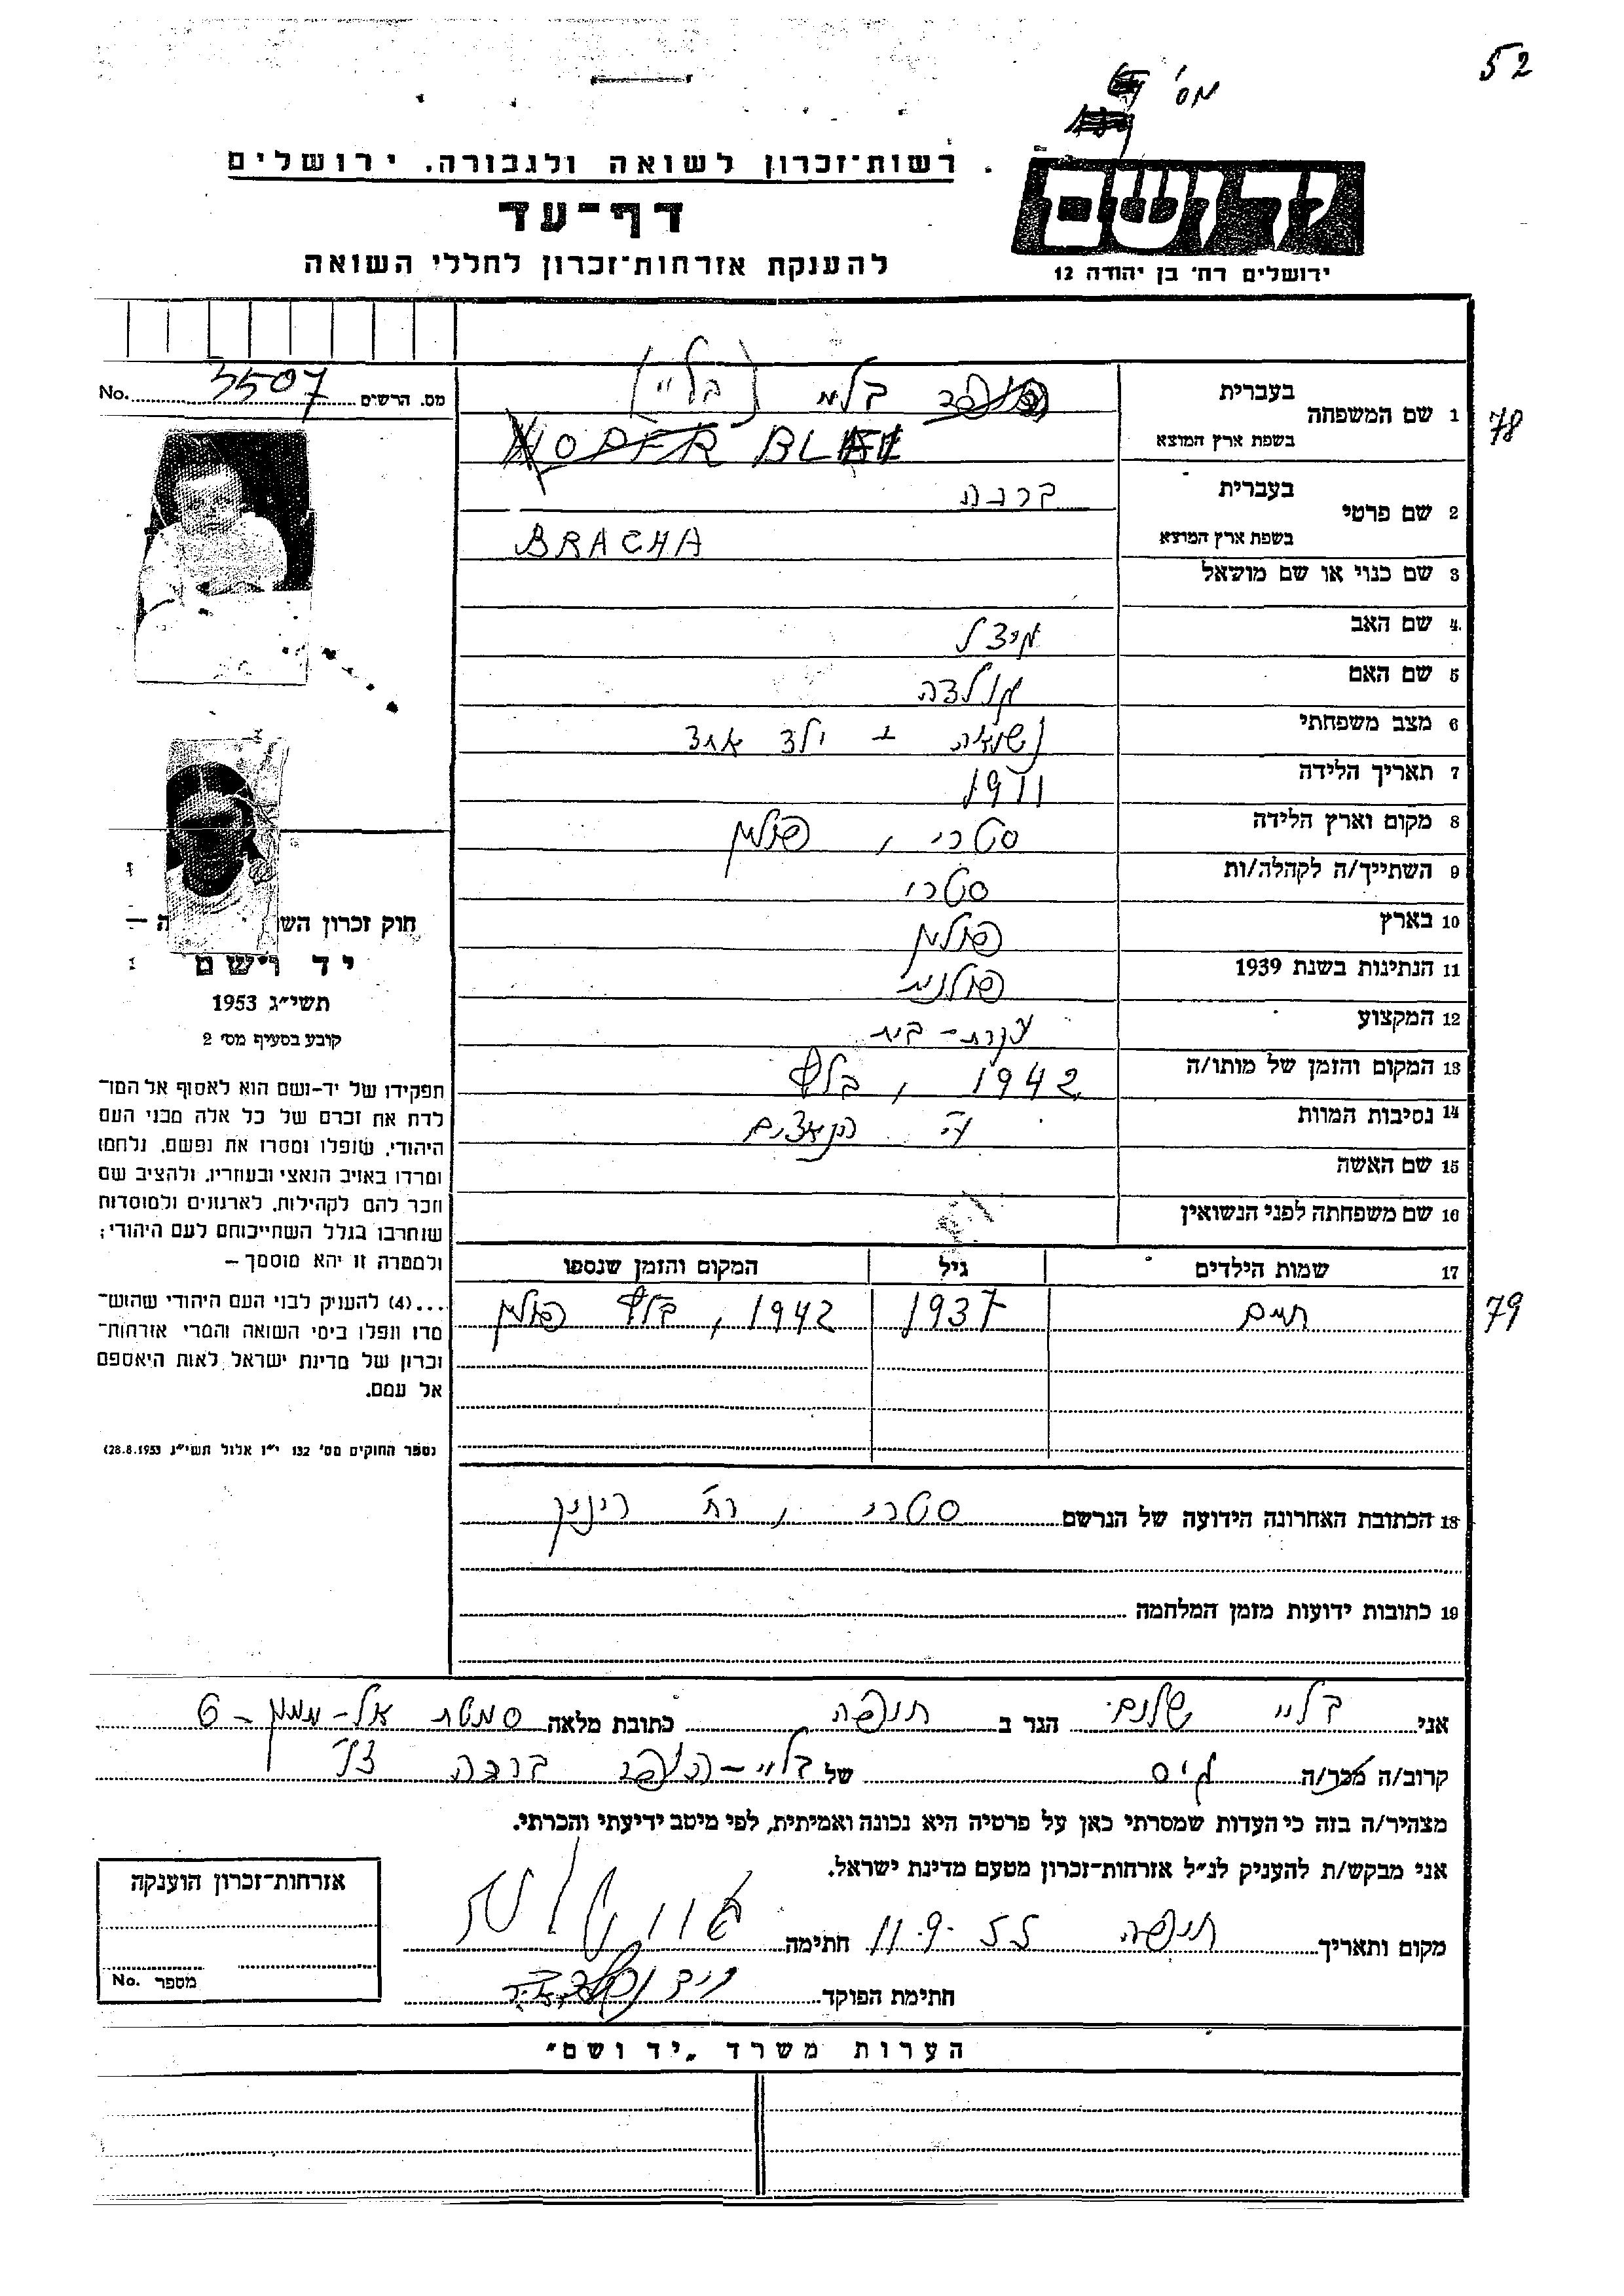 52
מס'
רשות־זכרון לשואה ולגבורה, ירושלים
דף־עד
להענקת אזרחות־זכרון לחללי השואה
יד ושם
ירושלים רח' בן יהודה 12
No. 3507 מס. הרשים
1 שם המשפחה
בעברית בלי (בליי)
בשפת ארץ המוצא HOFER BLEI
78
2 שם פרטי
בעברית ברכה
בשפת ארץ המוצא BRACHA
3 שם כנוי או שם מושאל
4. שם האב
5 שם האם
6 מצב משפחתי נשואה + ילד אחד
7 תאריך הלידה 1911
8 מקום וארץ הלידה סטרי, פולין
9 השתייך/ה לקהלה/ות סטרי
10 בארץ פולין
11 הנתינות בשנת 1939 פולנית
12 המקצוע עקרת-בית
13 המקום והזמן של מותו/ה 1942, בלץ
14 נסיבות המוות ע"י הנאצים
15 שם האשה
16 שם משפחתה לפני הנשואין
17 שמות הילדים גיל המקום והזמן שנספו
חיים 1937 1942, בלץ פולין
79
18 הכתובת האחרונה הידועה של הנרשם סטרי, רח'
19 כתובות ידועות מזמן המלחמה
חוק זכרון הש ה —
יד ושם
תשי״ג 1953
קובע בסעיף מס' 2
תפקידו של יד-ושם הוא לאסוף אל המו־
לדת את זכרם של כל אלה מבני העם
היהודי, שנפלו ומסרו את נפשם, נלחמו
ומרדו באויב הנאצי ובעוזריו, ולהציב שם
וזכר להם לקהילות, לארגונים ולמוסדות
שנחרבו בגלל השתייכותם לעם היהודי;
ולמטרה זו יהא מוסמך —
...(4) להעניק לבני העם היהודי שהוש־
מדו ונפלו בימי השואה והמרי אזרחות־
זכרון של מדינת ישראל לאות היאספם
אל עמם.
(ספר החוקים מס' 132 י״ז אלול תשי״ג 28.8.1953)
אני בליי שלום הגר ב חיפה כתובת מלאה סמטת אל- 6
קרוב/ה מכר/ה גיס של בליי-הופר ברכה ז"ל
מצהיר/ה בזה כי העדות שמסרתי כאן על פרטיה היא נכונה ואמיתית, לפי מיטב ידיעתי והכרתי.
אני מבקש/ת להעניק לנ״ל אזרחות־זכרון מטעם מדינת ישראל.
מקום ותאריך חיפה 11.9.55 חתימה
חתימת הפוקד
אזרחות־זכרון הוענקה
No. מספר
הערות משרד „יד ושם״